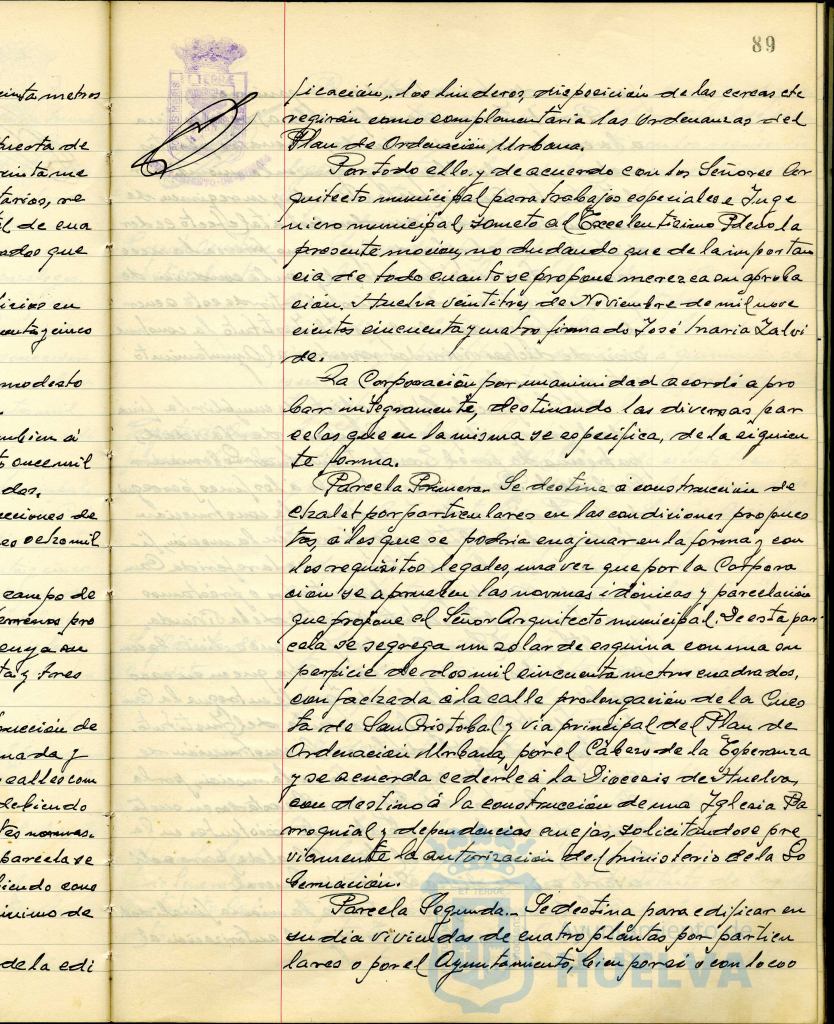 89
cinta metros
uesta de
tarios, re
ados que
modesto
dos.
cciones de
campo de
ta y tres
nada y
debiendo
parcela se
de la edi
ficación, los linderos, disposición de las cercas etc
regirán como complementaria las ordenanzas del
Plan de Ordenación, Urbana.
Por todo ello, y de acuerdo con los Señores Ar
quitecto municipal para trabajos especiales e Inge
niero municipal, someto al Excelentísimo Pleno la
presente moción, no dudando que de la importan
cia de todo cuanto se propone merezca su aproba
ción. Huelva veintitres de Noviembre de mil nove
cientos cincuenta y cuatro firmado José Maria Zalvi
de.
La Corporación por unanimidad acordó apro
bar integramente, destinando las diversas par
celas que en la misma se especifica, de la siguien
te forma.
Parcela Primera. Se destina á construcción de
chalet por particulares en las condiciones propues
tas, á los que se podria enajenar en la forma y con
los requisitos legales, una vez que por la Corpora
ción se aprueben las normas idónicas y parcelación
que propone el Señor Arquitecto municipal. De esta par
cela se segrega un solar de esquina con una su
perficie de dos mil cincuenta metros cuadrados,
con fachada á la calle prolongación de la Cues
ta de San Cristobal y via principal del Plan de
Ordenación Urbana, por el Cabezo de la Esperanza
y se acuerda cederle á la Diocesis de Huelva,
con destino á la construcción de una Iglesia Pa
rroquial y dependencias anejas, solicitándose pre
viamente la autorización del Ministerio de la Go
bernación.
Parcela Segunda.- Se destina para edificar en
su dia viviendas de cuatro plantas por particu
lares o por el Ayuntamiento, bien por si o con los oo
Ayuntamiento de
HUELVA